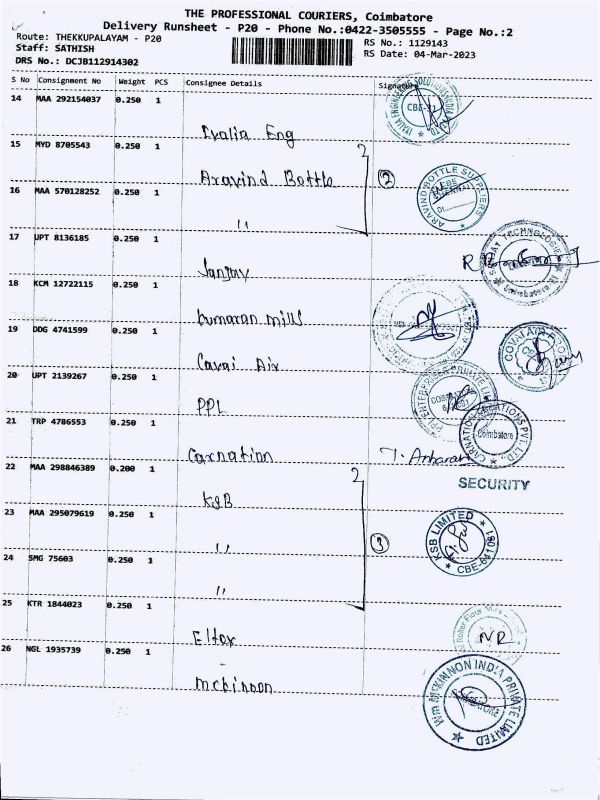 THE PROFESSIONAL COURIERS, Coimbatore
Delivery Runsheet - P20 - Phone No.:0422-3505555 - Page No.:2
Route: THEKKUPALAYAM - P20
RS No.: 1129143
Staff: SATHISH
RS Date: 04-Mar-2023
DRS No.: DCJB112914302
S No Consignment No Weight PCS Consignee Details Signature
14 MAA 292154037 0.250 1
CBE
Ivalia Eng
15 MYD 8705543 0.250 1
Aravind Bottle
2
ARAVIND BOTTLE SUPPLIERS
16 MAA 570128252 0.250 1
"
17 UPT 8136185 0.250 1
Sanjay
18 KCM 12722115 0.250 1
kumaran mills
19 DDG 4741599 0.250 1
Covai Air
20 UPT 2139267 0.250 1
PPL
21 TRP 4786553 0.250 1
Coimbatore
Carnation
T. Anbaran
22 MAA 298846389 0.200 1
SECURITY
KSB
23 MAA 295079619 0.250 1
"
3
KSB LIMITED
24 SMG 75603 0.250 1
"
25 KTR 1844023 0.250 1
Eltex
NR
26 NGL 1935739 0.250 1
mckinnon
Wm MCKINNON INDIA PRIVATE LIMITED